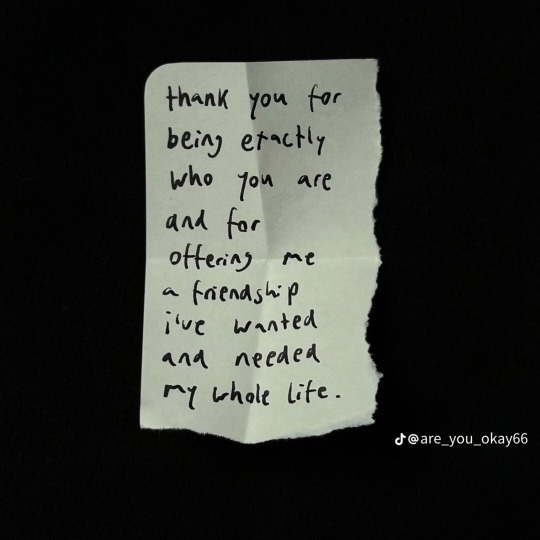 thank you for
being exactly
who you are
and for
offering me
a friendship
i've wanted
and needed
my whole life.
@are_you_okay66